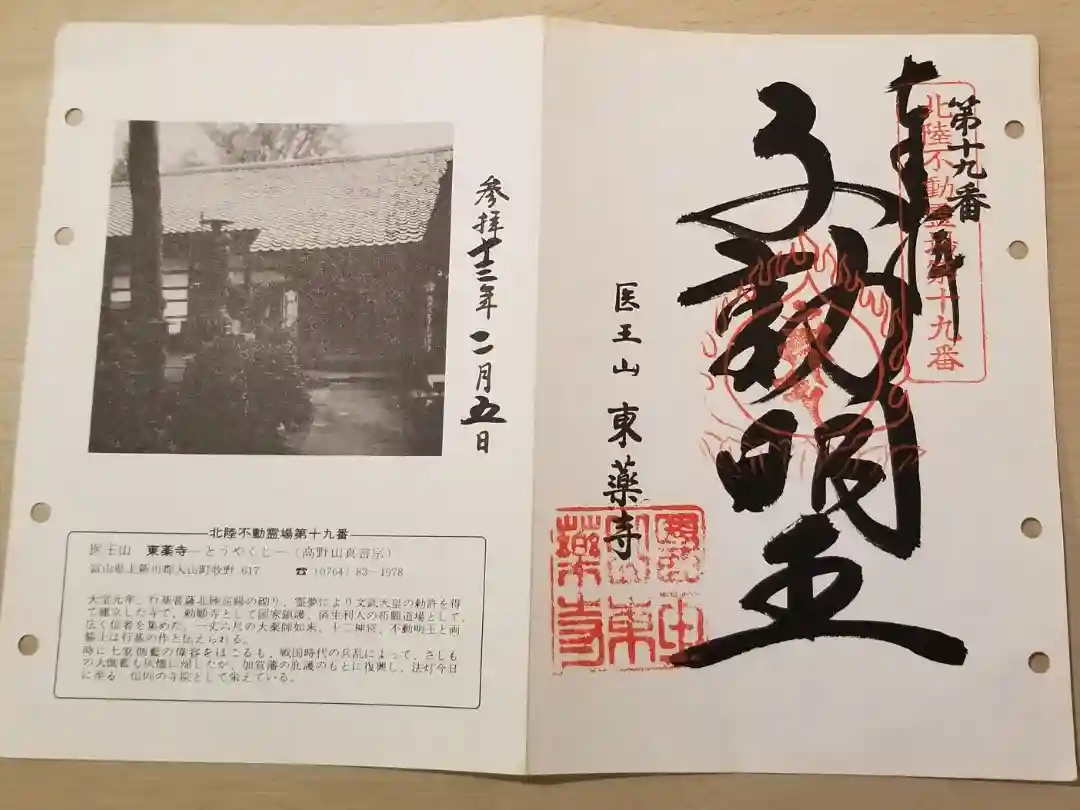 第十九番
北陸不動霊場第十九番
不動明王
医王山 東薬寺
参拝十三年二月五日
北陸不動霊場第十九番
医王山 東薬寺―とうやくじ―(高野山真言宗)
富山県上新川郡大山町牧野 617 ☎(0764)83-1978
大宝元年、行基菩薩北陸巡錫の砌り、霊夢により文武天皇の勅許を得
て建立した寺で、勅願寺として国家鎮護、済生利人の祈願道場として、
広く信者を集めた。一丈六尺の大薬師如来、十二神将、不動明王と両
脇士は行基の作と伝えられる。
時に七堂伽藍の偉容をほこるも、戦国時代の兵乱によって、さしも
の大伽藍も灰燼に帰したが、加賀藩の庇護のもとに復興し、法灯今日
に至る 信仰の寺院として栄えている。